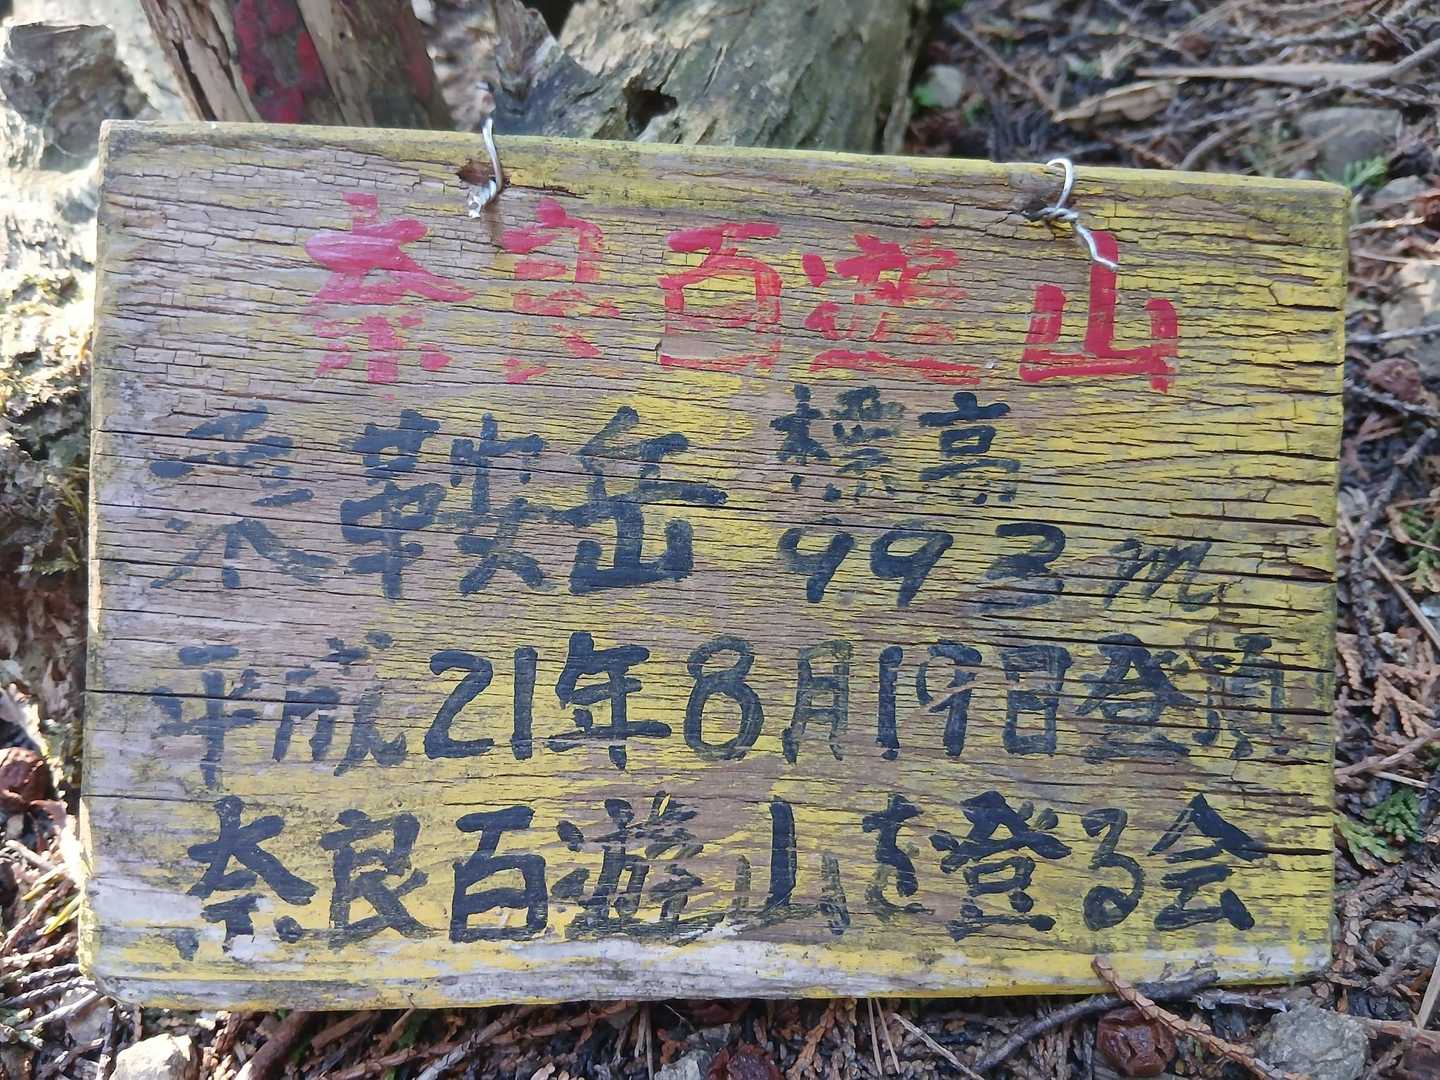 奈良百遊山
乗鞍岳 標高
993m
平成21年8月19日登頂
奈良百遊山を登る会